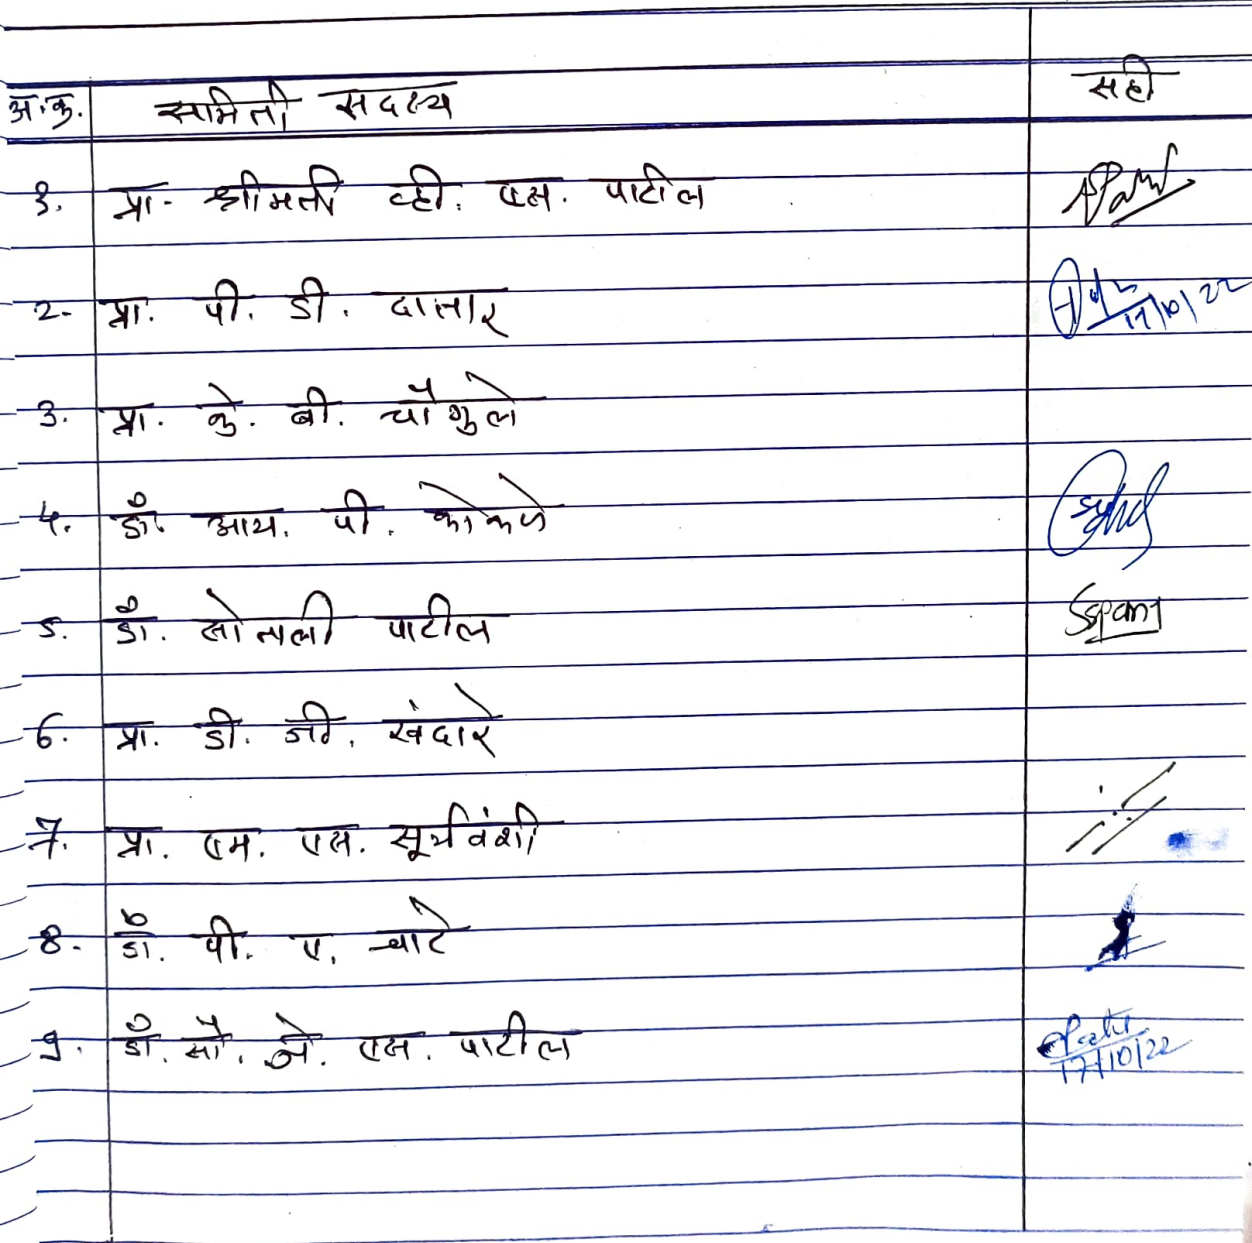 अ.क्र. समिती सदस्य सही
१. प्रा. श्रीमती व्ही. एस. पाटील
२. प्रा. पी. डी. दातार 17/10/22
३. प्रा. के. बी. चौगुले
४. डॉ. आय. पी. कोकणे
५. डॉ. सोनाली पाटील
६. प्रा. डी. जी. खंदारे
७. प्रा. एम. एस. सूर्यवंशी
८. डॉ. पी. ए.
९. डॉ. सौ. जे. एस. पाटील 17/10/22